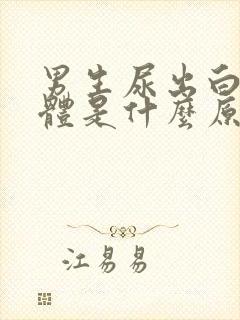 男生尿出白
體是什麼原
江易易